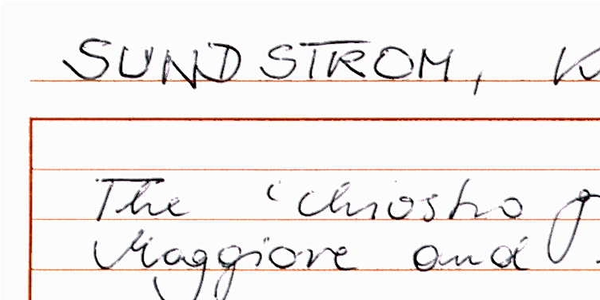 SUNDSTROM,
The 'chiostro
Maggiore and